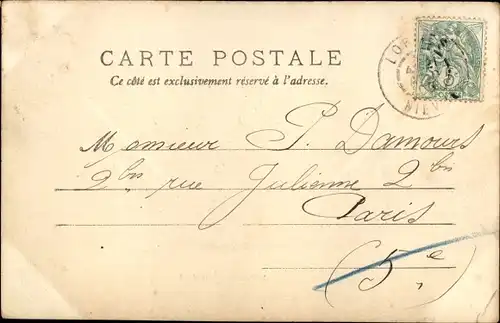 CARTE POSTALE
Ce côté est exclusivement réservé à l'adresse.
Monsieur P. Damours
2 bis rue Julienne 2 bis
Paris
(5e)